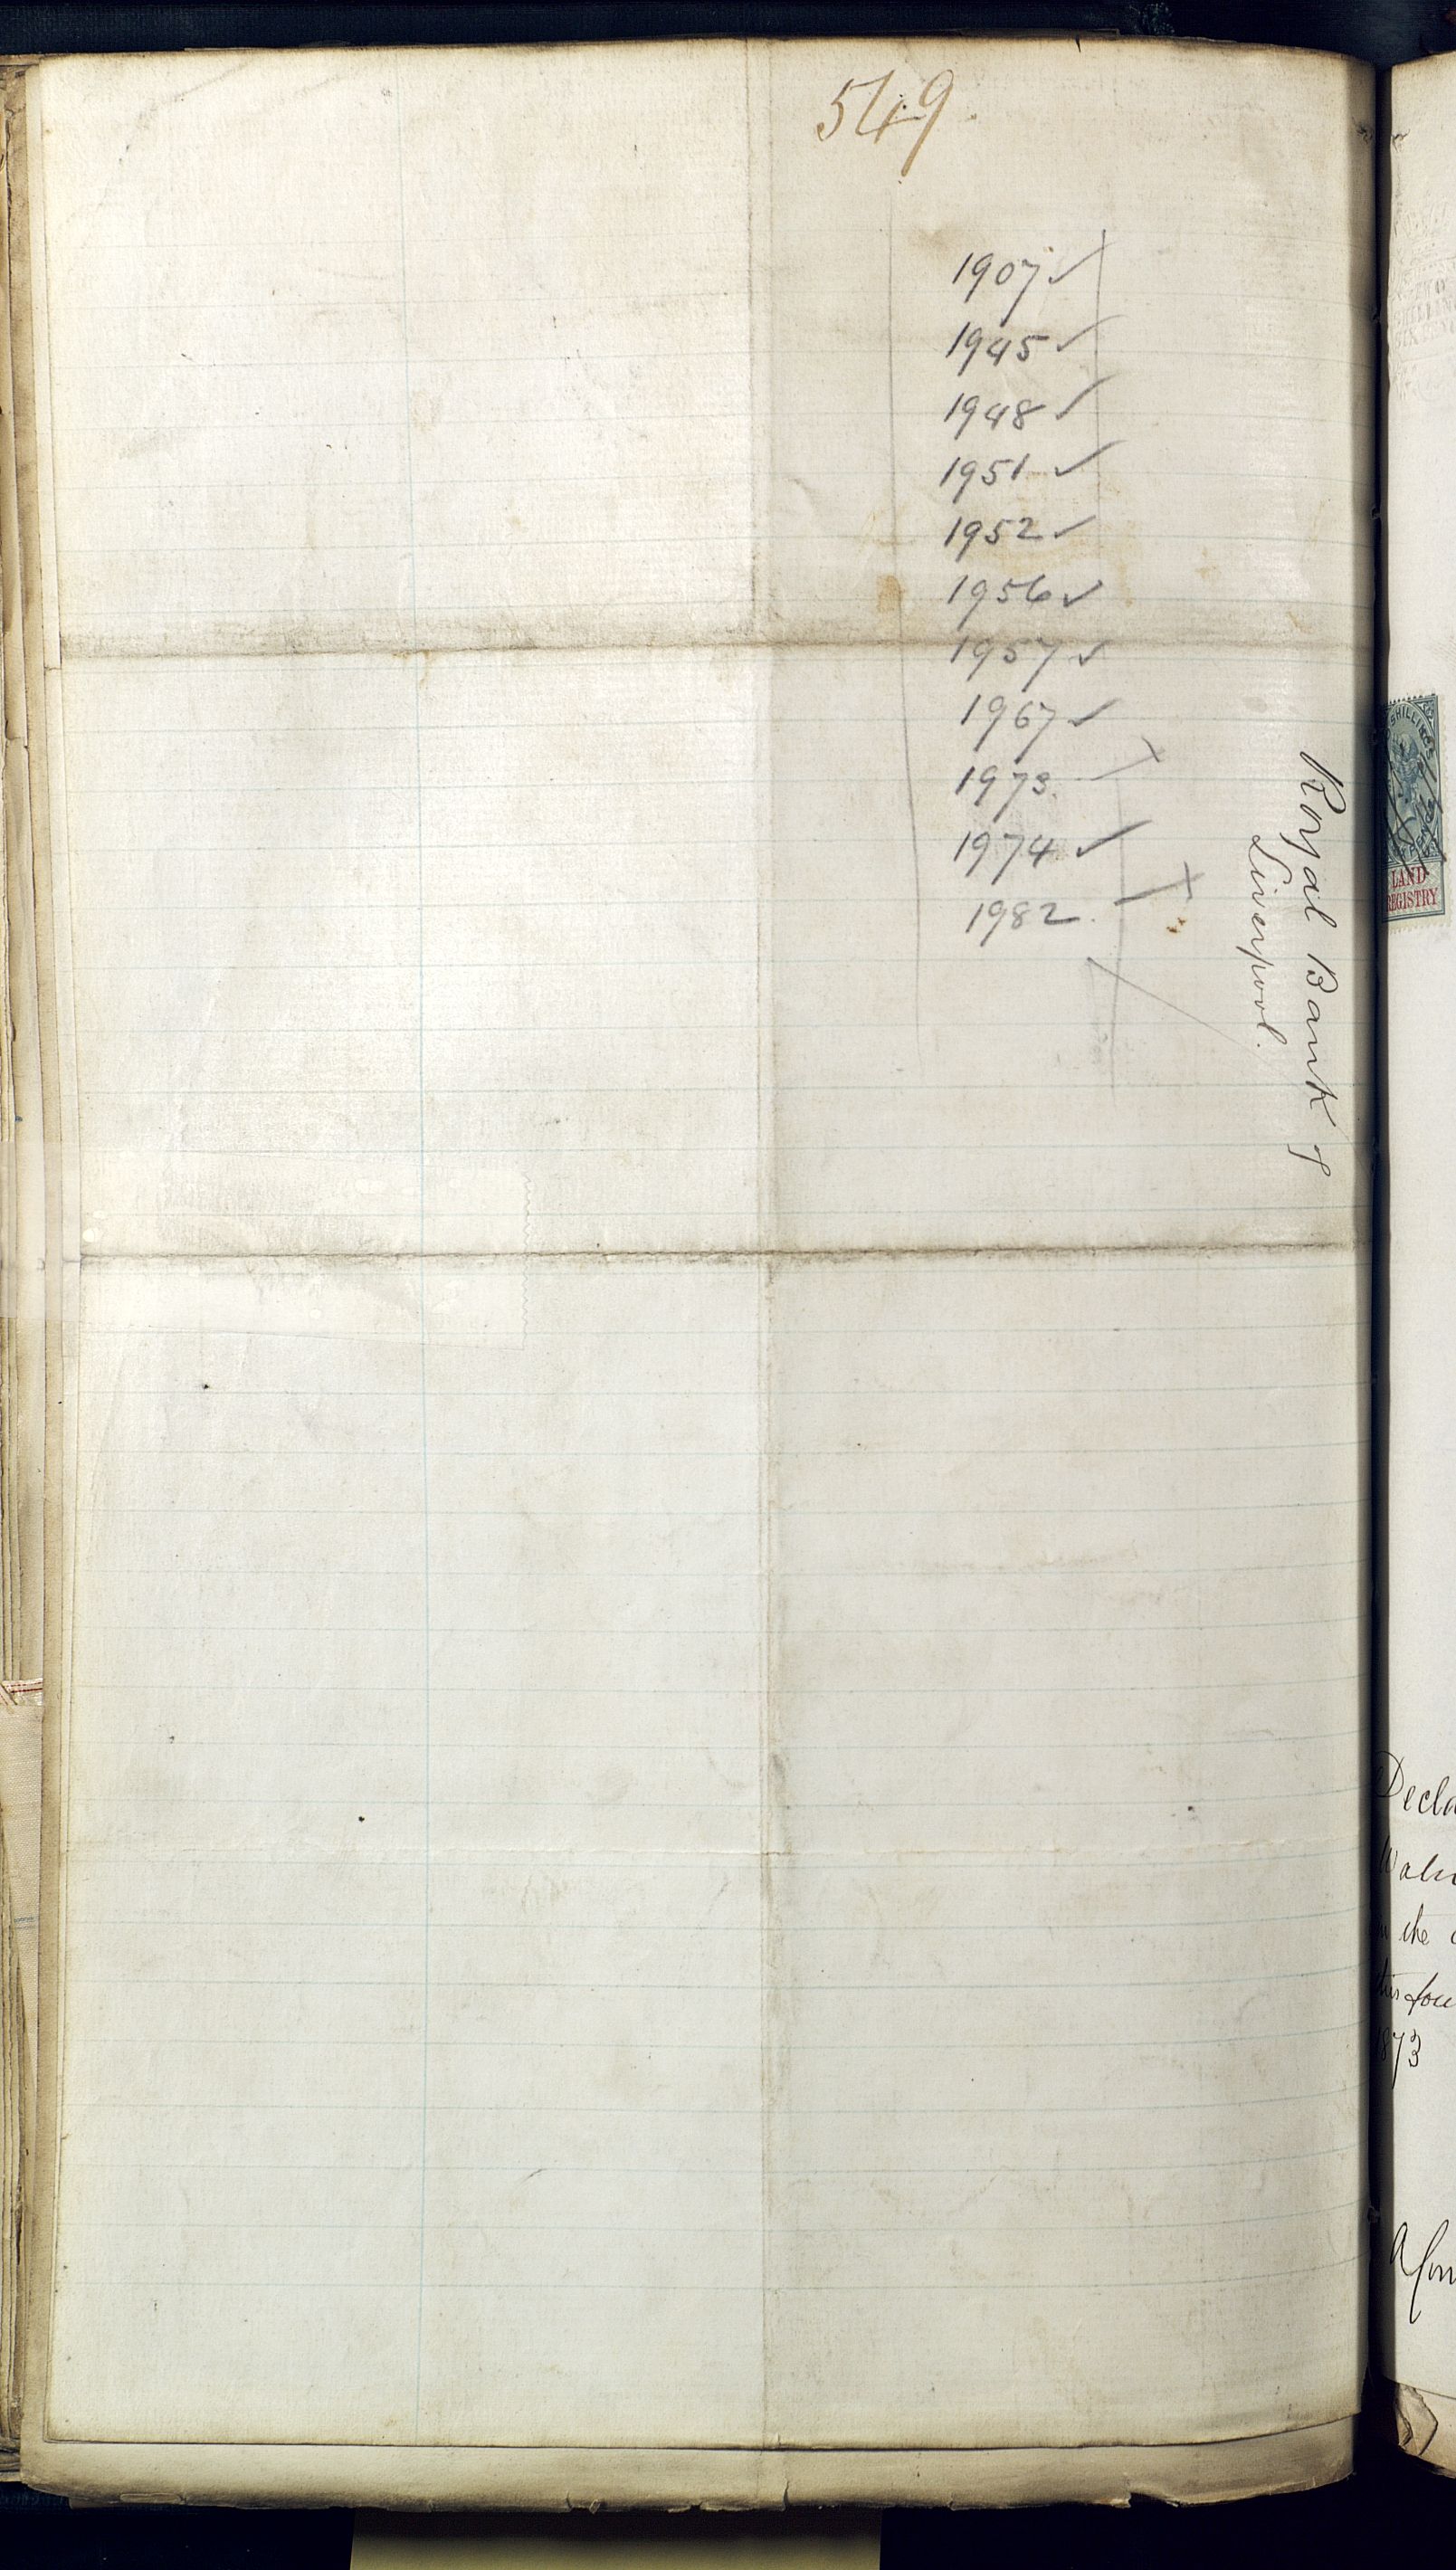 549.
1907 ✓
1945 ✓
1948 ✓
1951 ✓
1952 ✓
1956 ✓
1957 ✓
1967 ✓
1973.
1974 ✓
1982.
Royal Bank of
Liverpool.
SHILLINGS
LAND
REGISTRY
the
1873